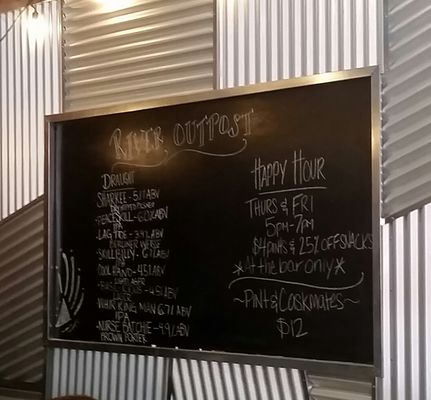 RIVER OUTPOST
DRAUGHT
SHARKEE - 5.1% ABV
PEACESKILL - 6.0% ABV
IPA
LAG TOE - 3.9% ABV
BERLINER WEISSE
SKILLIFILLY - 6.7% ABV
IPA
COOL HAND - 4.5% ABV
LIGHT LAGER
4.5% ABV
WHIRLING MAN 6.7% ABV
IPA
NURSE BATCHIE - 4.9% ABV
BROWN PORTER
HAPPY HOUR
THURS & FRI
5PM - 7PM
$4 PINTS & 25% OFF SNACKS
*At the bar only*
~PINT & COCKMATES~
$12